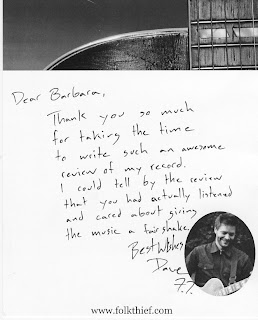 Dear Barbara,
Thank you so much
for taking the time
to write such an awesome
review of my record.
I could tell by the review
that you had actually listened
and cared about giving
the music a fair shake.
Best Wishes
Dave
www.folkthief.com